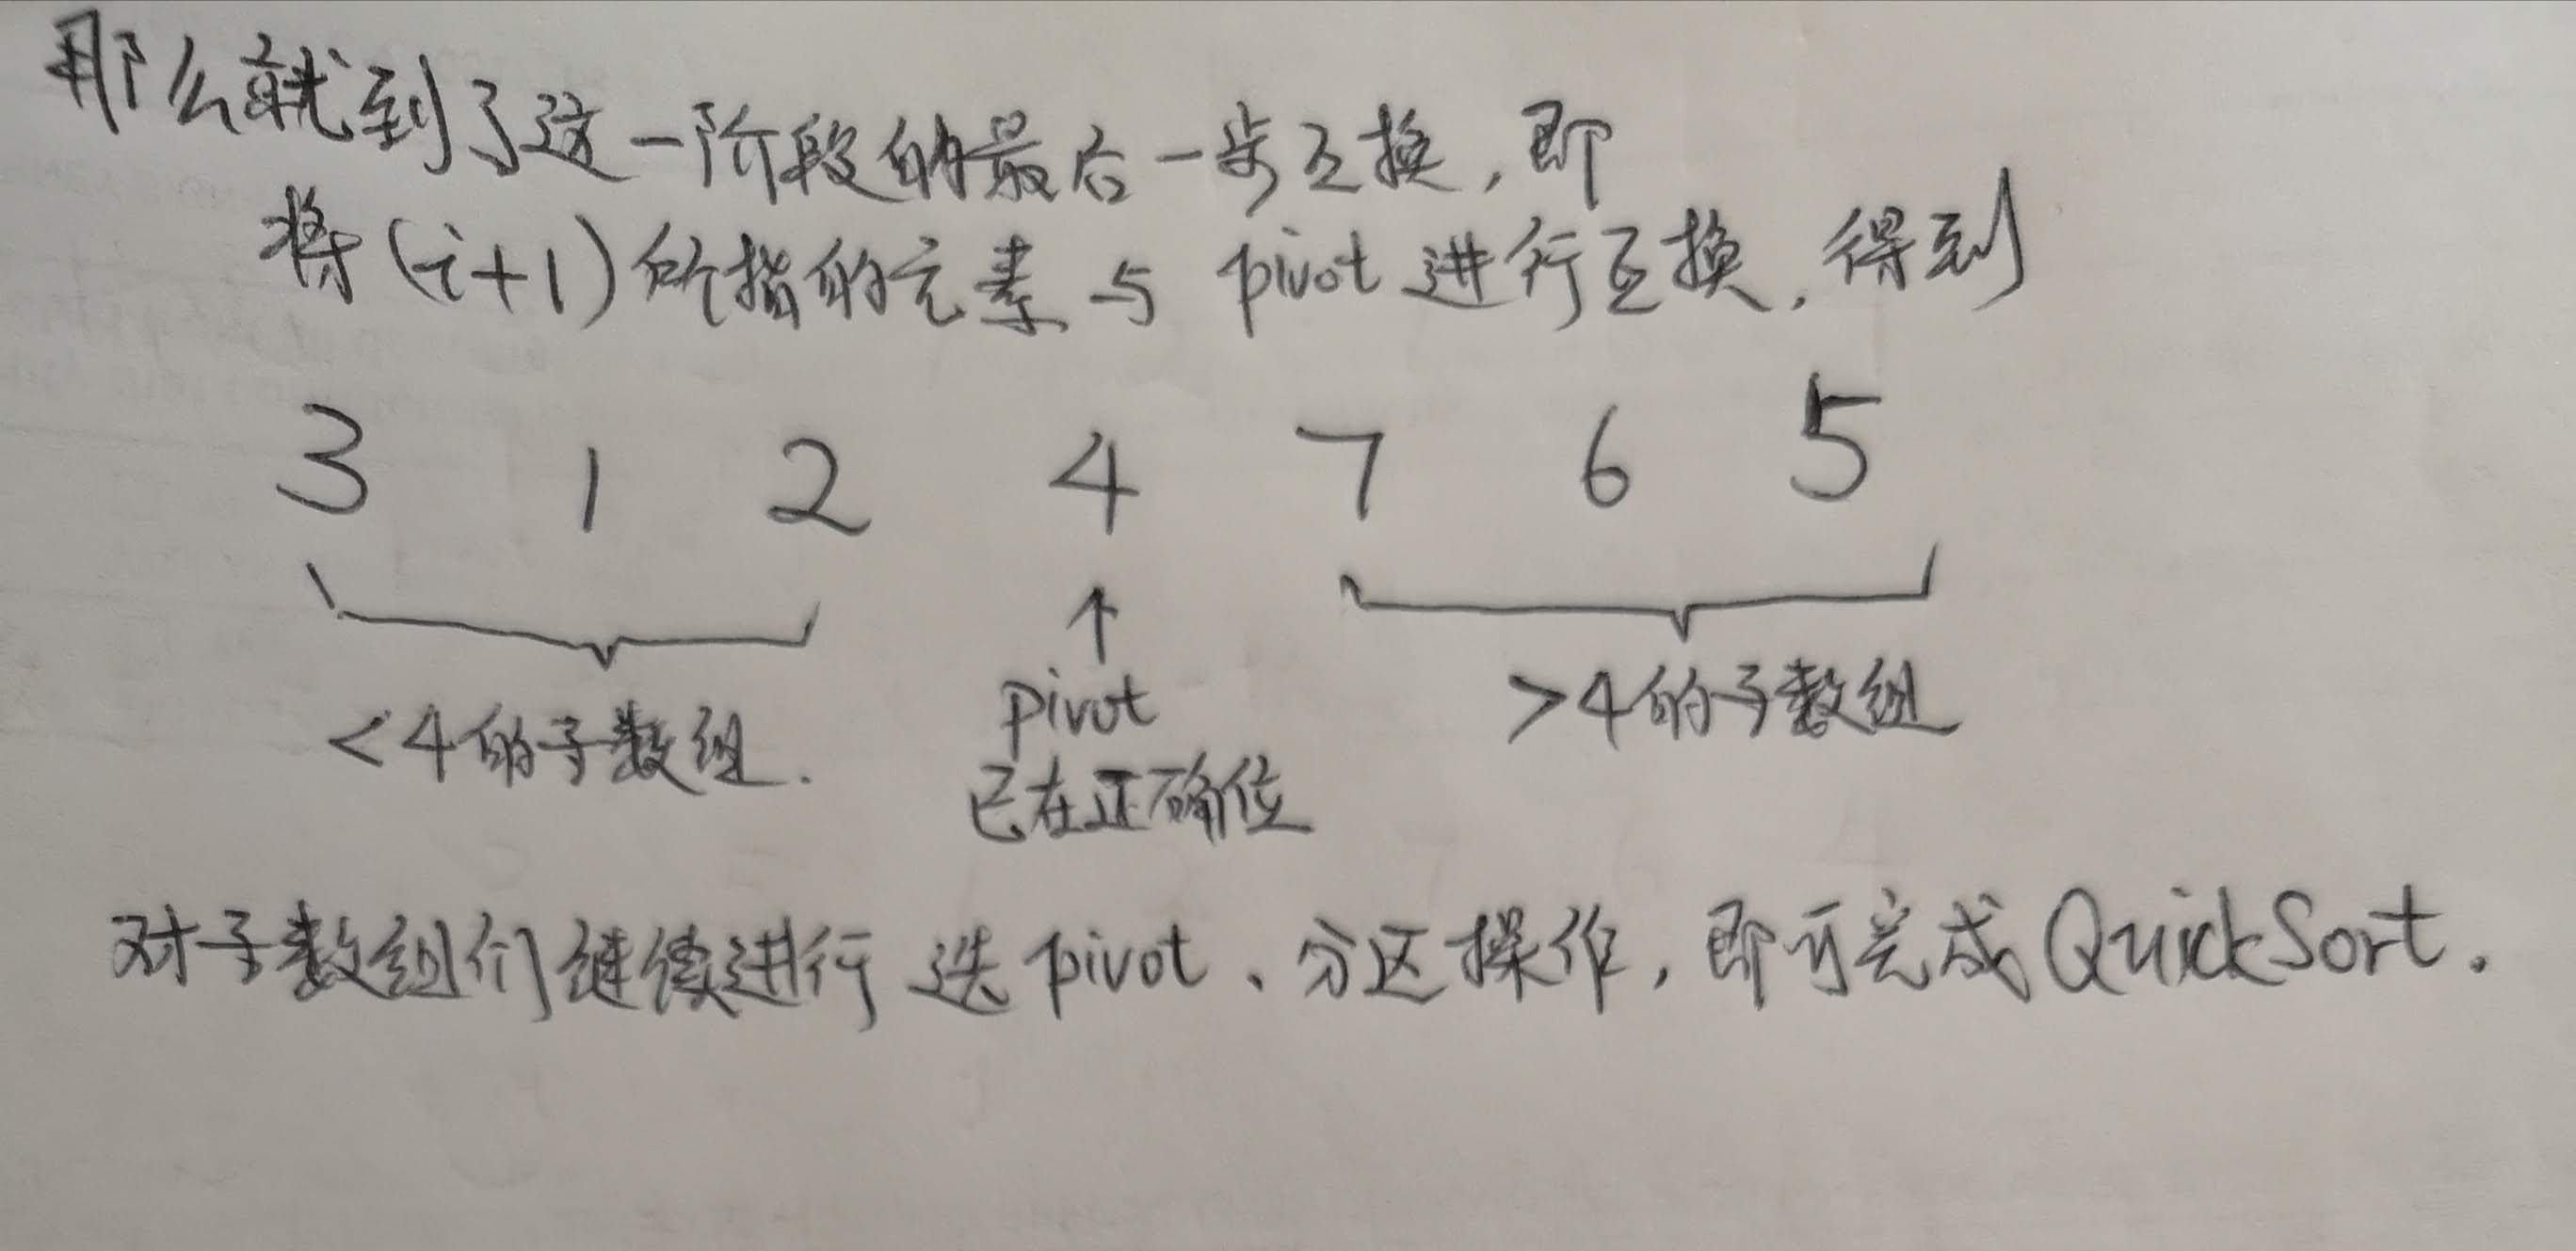 那么就到了这一阶段的最后一步互换，即
将(i+1)所指的元素与 pivot 进行互换，得到
3 1 2 4 7 6 5
↑
<4的子数组. pivot >4的子数组
已在正确位
对子数组们继续进行 选 pivot、分区操作，即可完成QuickSort.